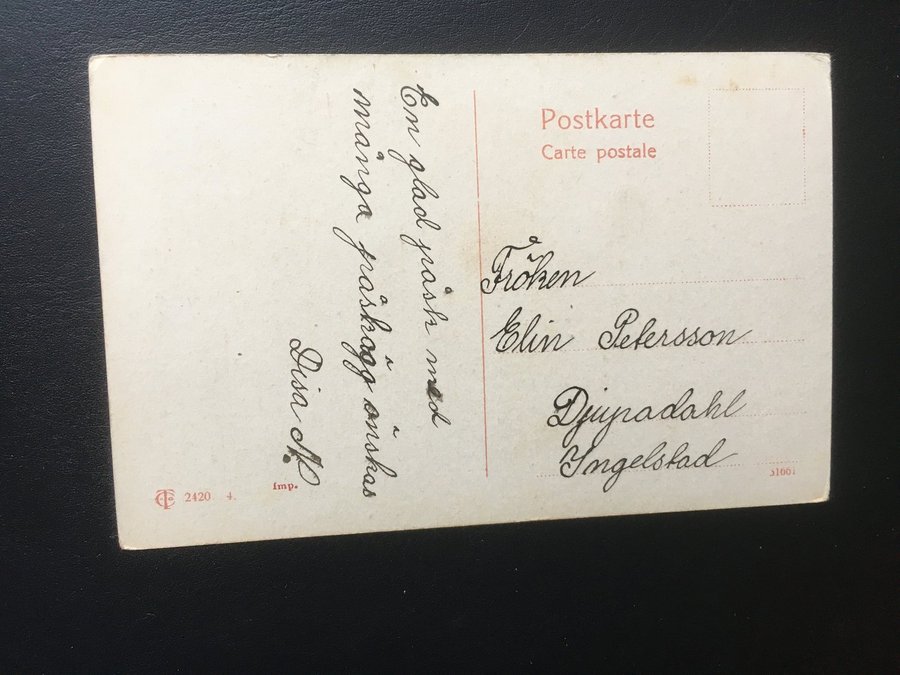 En glad påsk med
många påskägg önskas
Disa N.
Postkarte
Carte postale
Fröken
Elin Petersson
Djupadahl
Ingelstad
2420 4.
Imp.